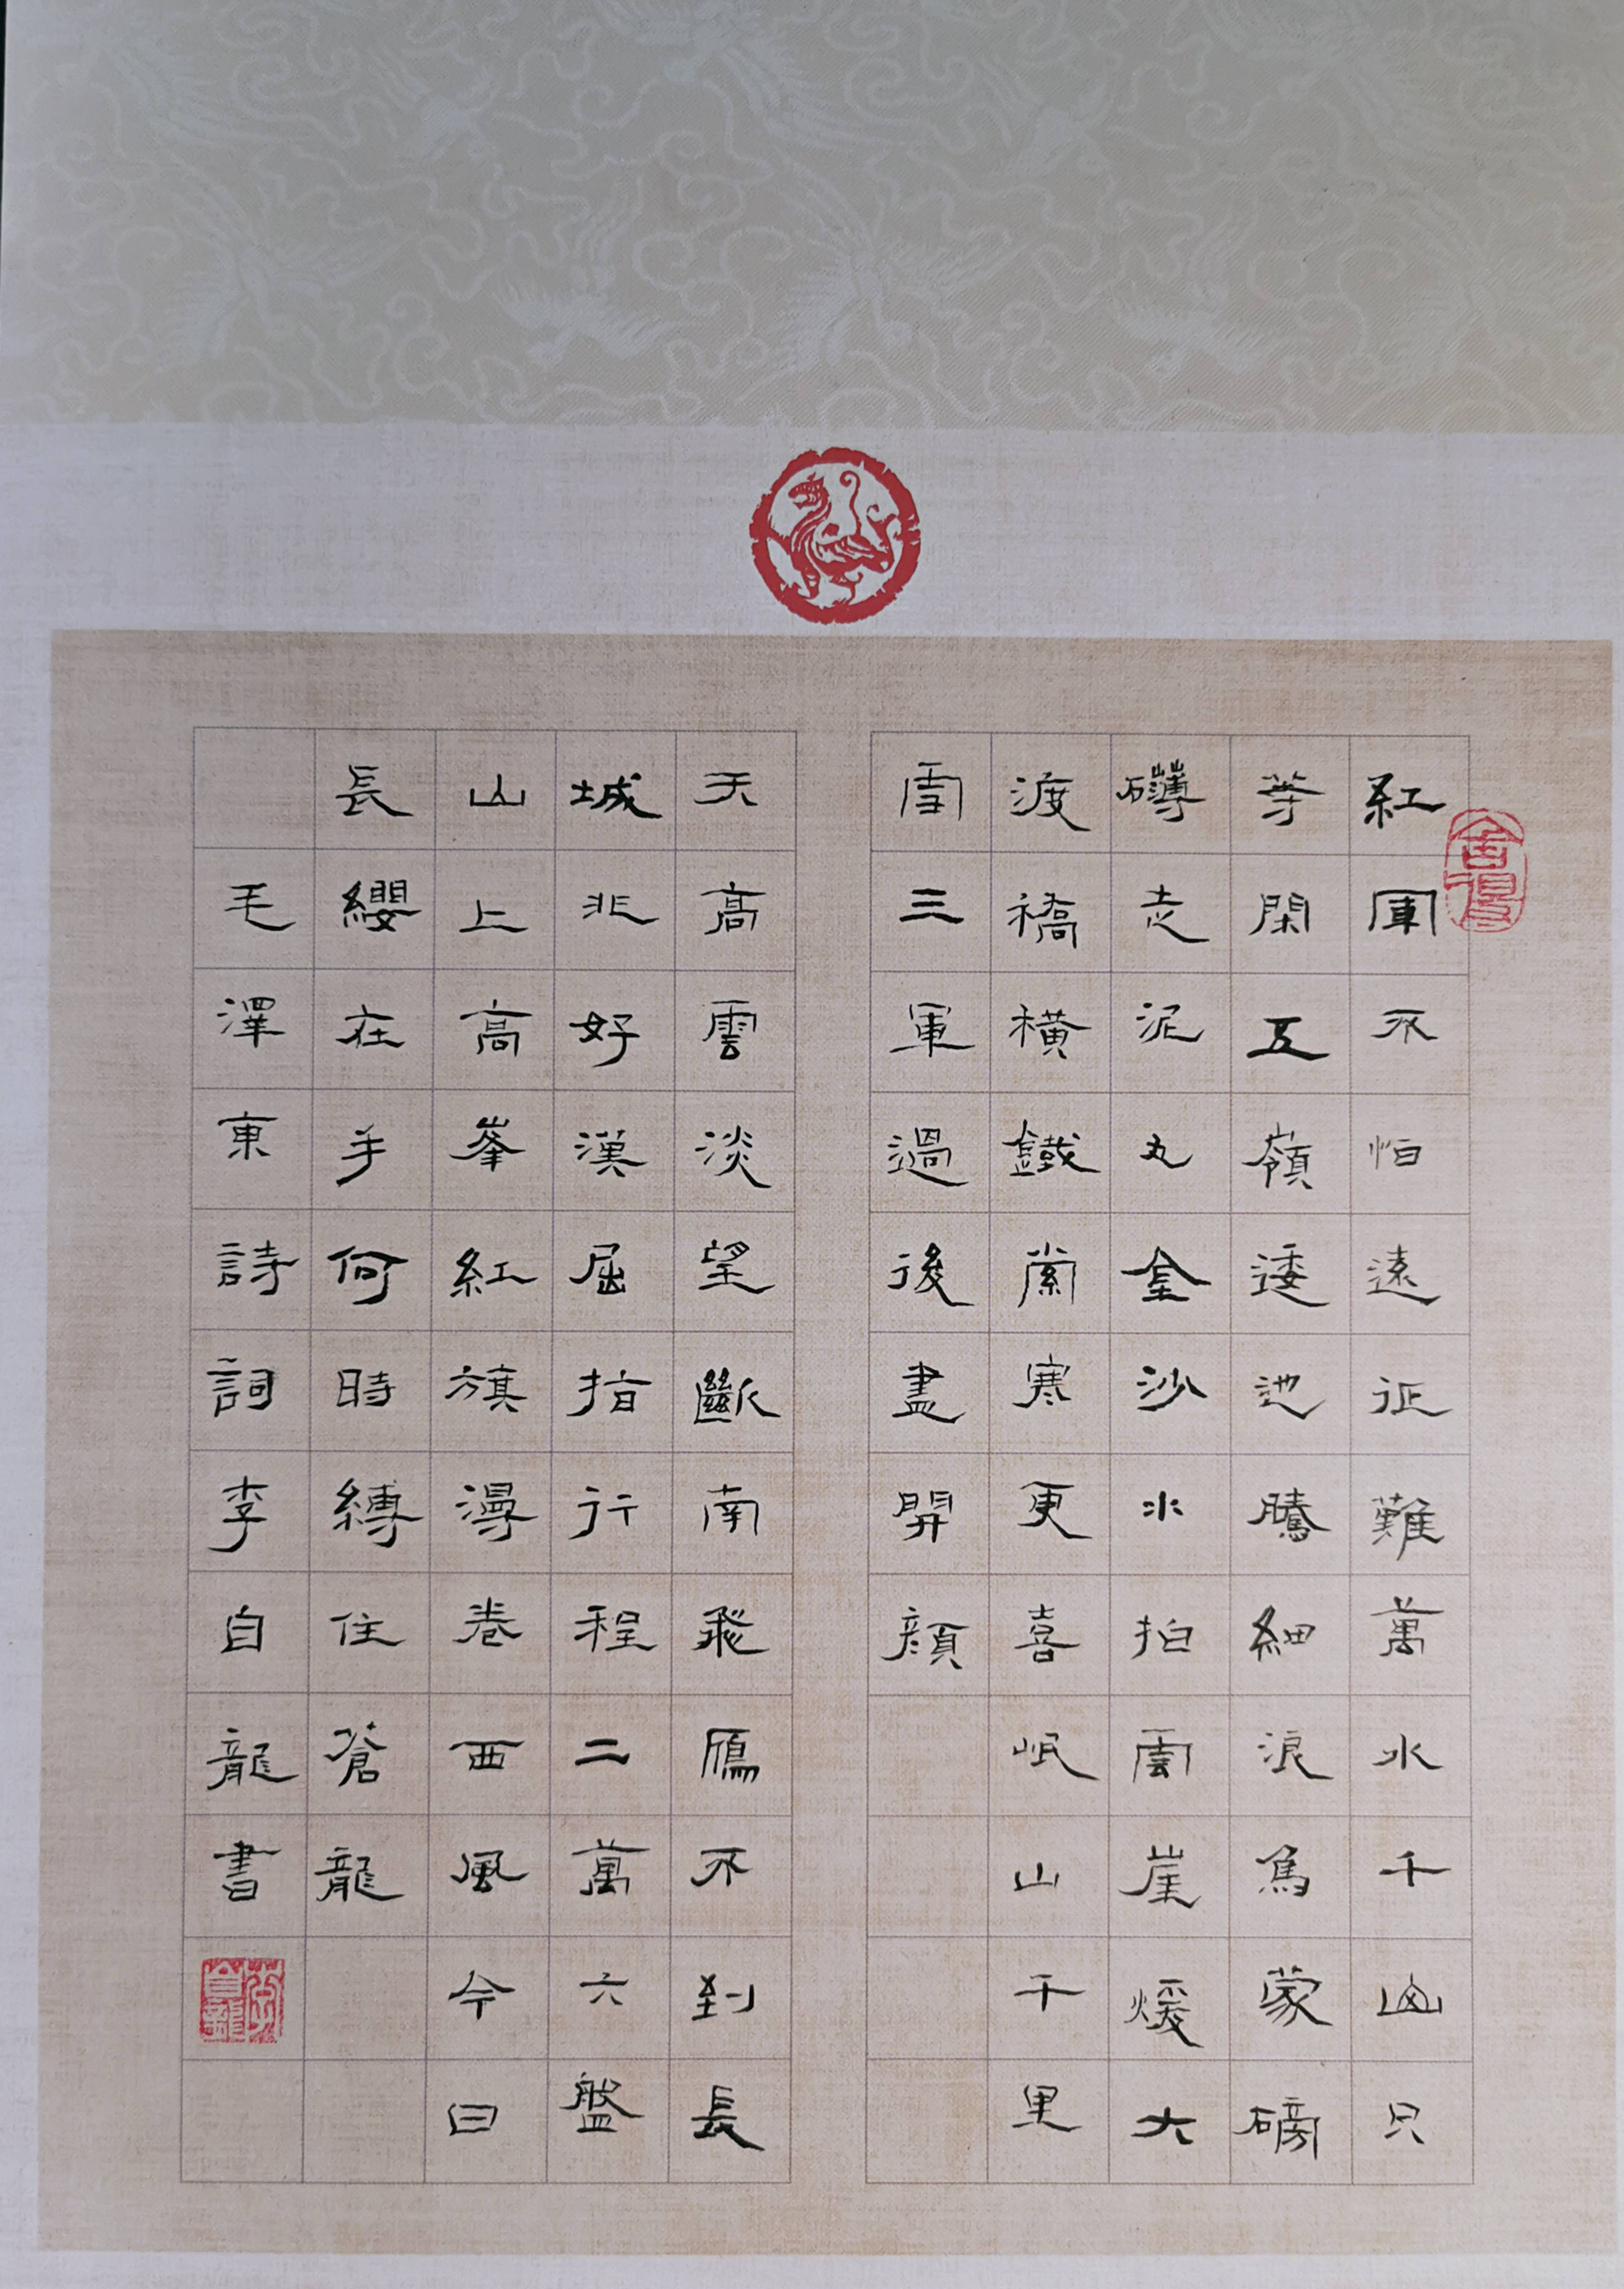 紅軍不怕遠征難萬水千山只
等閑五嶺逶迆騰細浪烏蒙磅
礴走泥丸金沙水拍雲崖煖大
渡橋橫鐵索寒更喜岷山千里
雪三軍過後盡開顏
天高雲淡望斷南飛鴈不到長
城非好漢屈指行程二萬六盤
山上高峯紅旗漫卷西風今日
長纓在手何時縛住蒼龍
毛澤東詩詞李自龍書
舍得
李自龍